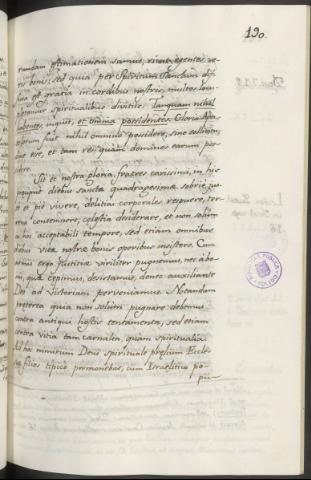 190.
rundam estimationem sumus, sicut egentes, ve-
ris bonis: sed quia per Spiritum Sanctum dif-
fusa est gratia in cordibus nostris, multos locu-
pletamus spiritualibus divitiis. Tanquam nihil
habentes, inquit, et omnia possidentes. Gloria Apo-
lorum fuit nihil omnino possidere, sine sollicitu-
ne esse, et tam rei quam dominos earum pos-
dere.
Sit et nostra gloria, fratres carissimi, in his
diebus sanctæ quadragesimæ sobrie, jus-
et pie vivere, delitias corporales respuere, ter-
rena contemnere, cælestia desiderare, et non solum
acceptabili tempore, sed etiam omnibus
diebus vitæ nostræ bonis operibus insistere. Cum
ergo justitiæ viriliter pugnemus, nec ab
quæ cepimus, desistamus, donec auxiliante
Deo ad victoriam perveniamus. Notandum
præterea quia non solum pugnare debemus
contra antiqui hostis tentamenta, sed etiam
contra vitia tam carnalia, quam spiritualia
Ad hoc nimirum Deus spirituale prælium Eccle-
filios typice præmonebat, cum Israelitico po-
pu-